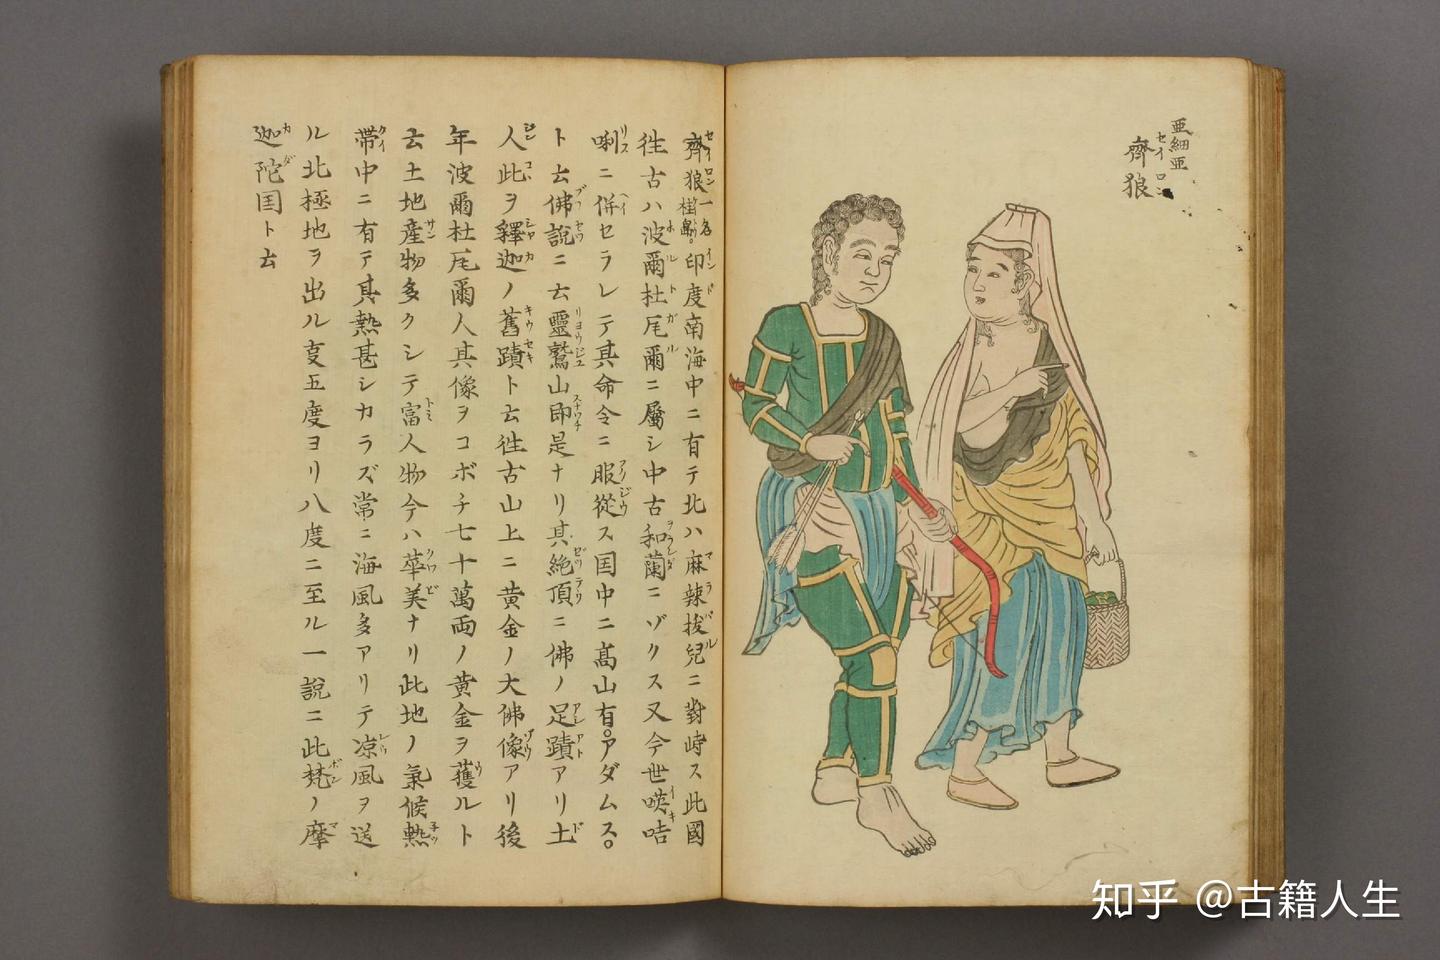 亜細亜
セイロン
齊狼
齊狼一名桂島。印度南海中ニ有テ北ハ麻辣拔兒ニ對峙ス此國
徃古ハ波爾杜尾爾ニ屬シ中古和蘭ニゾクス又今世暎咭
唎ニ併セラレテ其命令ニ服從ス国中ニ高山有。アダムス。
ト云佛說ニ云靈鷲山即是ナリ其絶頂ニ佛ノ足蹟アリ土
人此ヲ釋迦ノ舊蹟ト云徃古山上ニ黄金ノ大佛像アリ後
年波爾杜尾爾人其像ヲコボチ七十萬両ノ黄金ヲ獲ルト
云土地産物多クシテ富人物今ハ華美ナリ此地ノ氣候熱
帶中ニ有テ其熱甚シカラズ常ニ海風多アリテ凉風ヲ送
ル北極地ヲ出ル叓五度ヨリ八度ニ至ル一說ニ此梵ノ摩
迦陀国ト云
知乎 @古籍人生